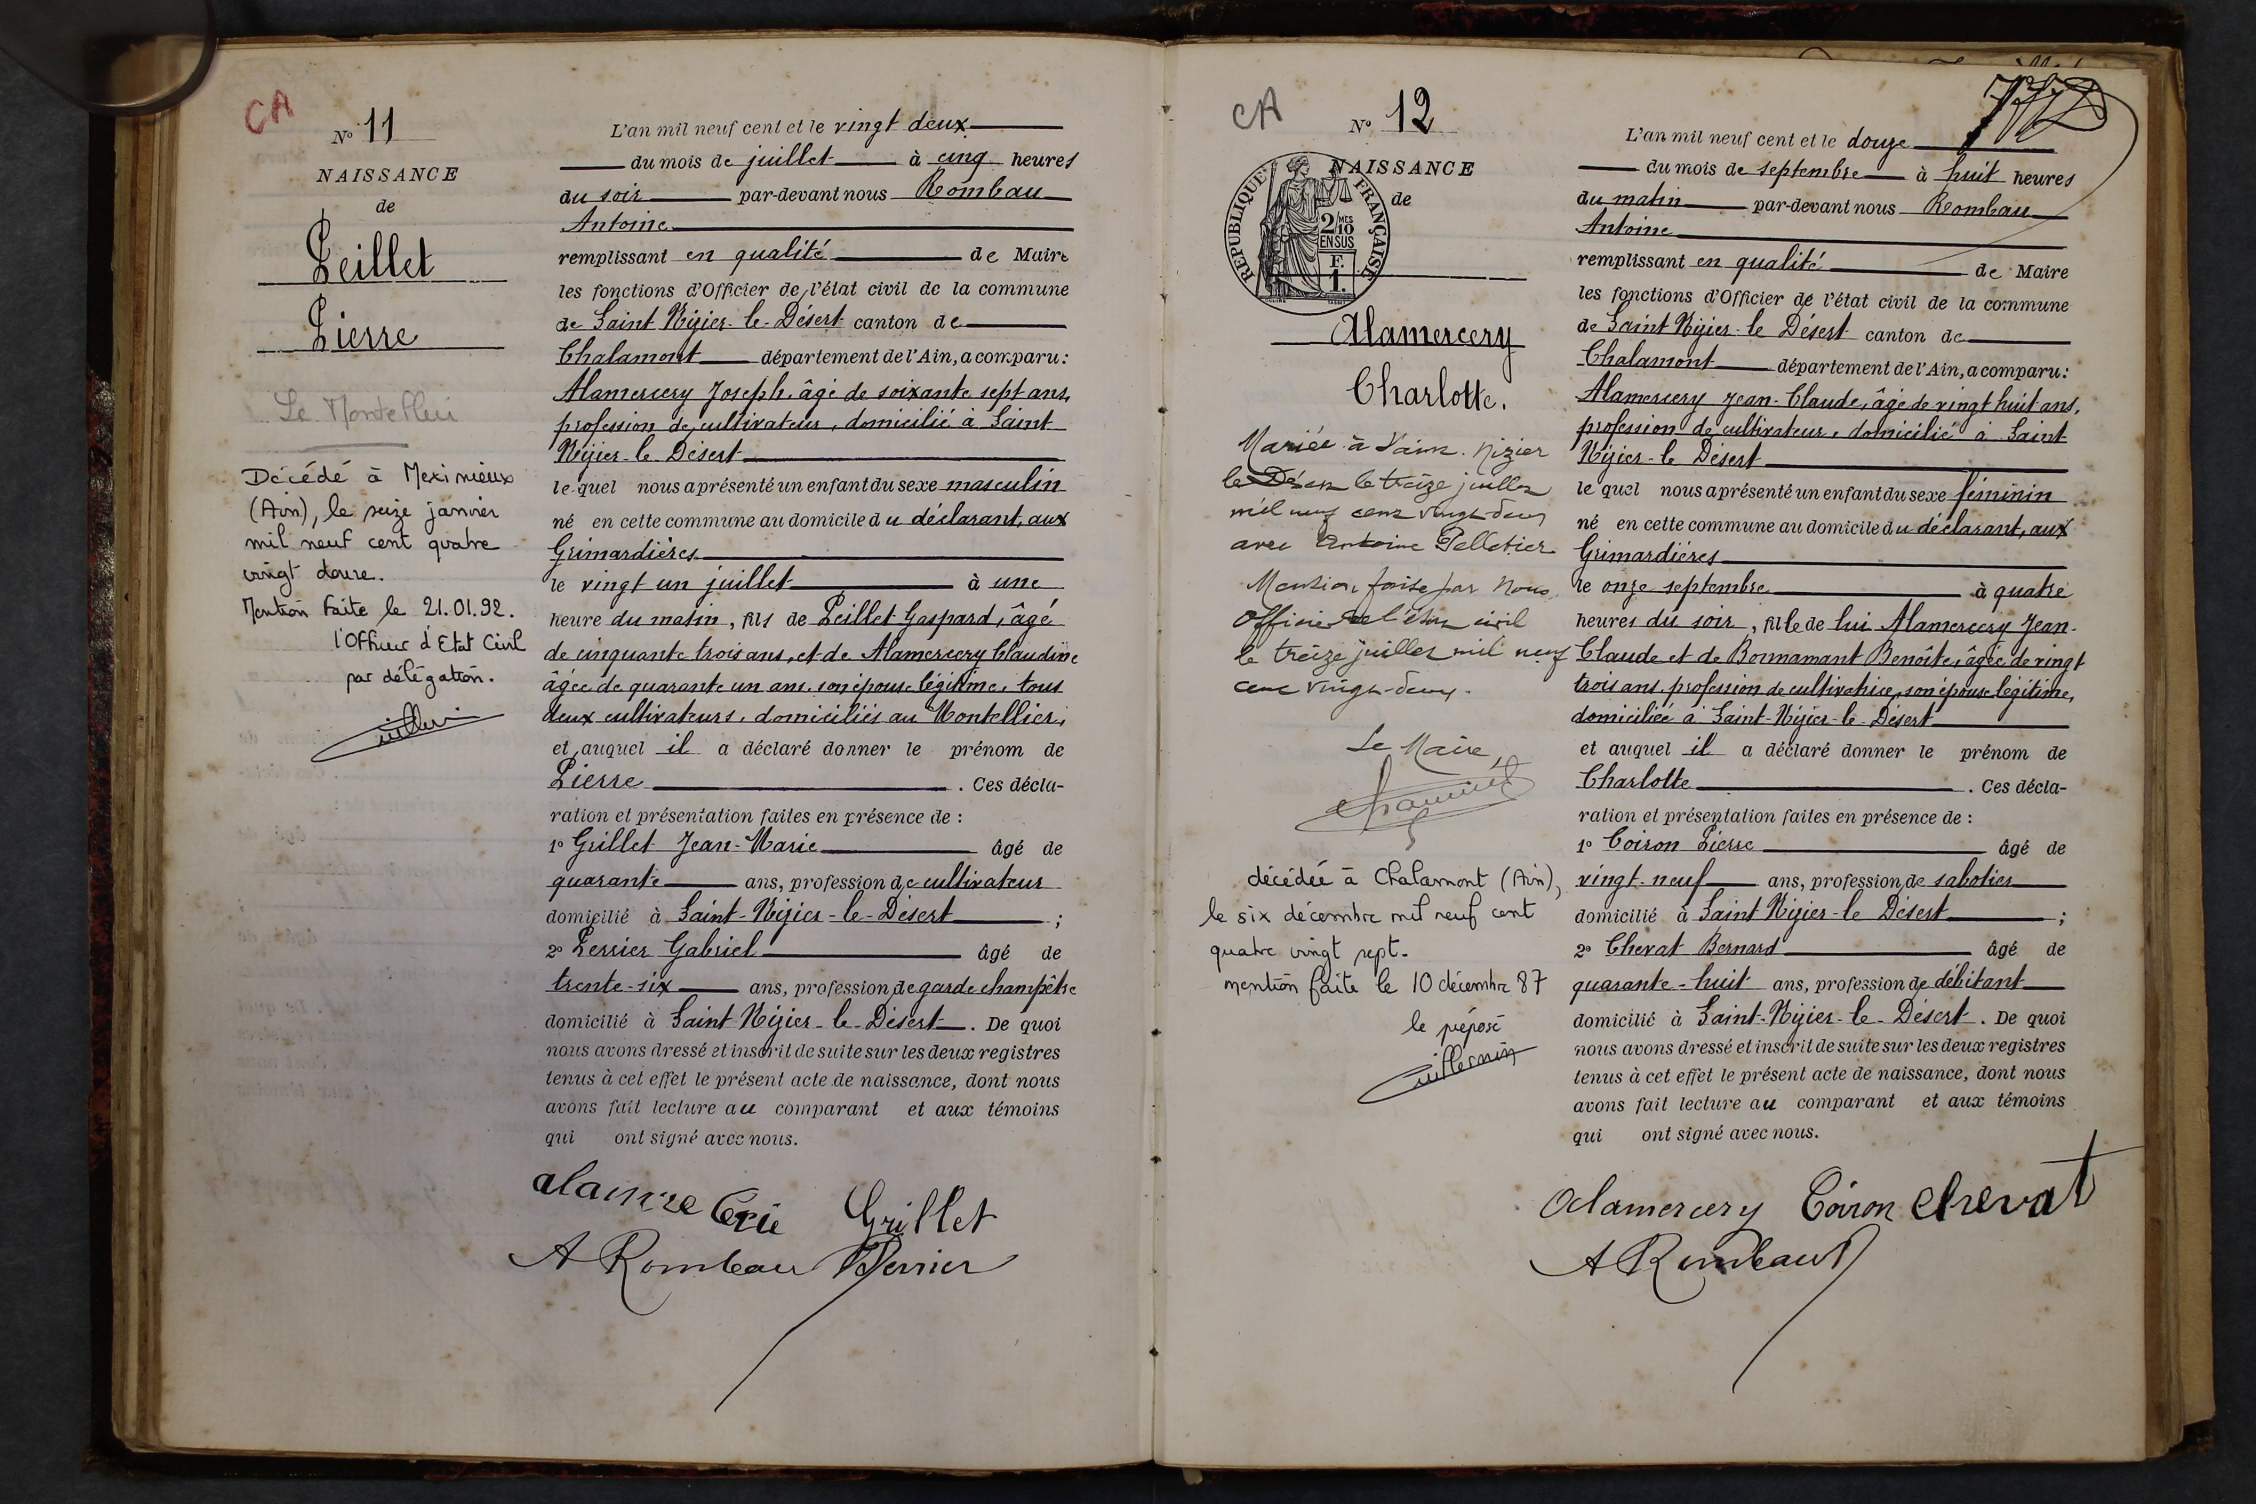 CA
N° 11
NAISSANCE
de
Peillet
Pierre
Le Montellier
Décédé à Meximieux
(Ain), le seize janvier
mil neuf cent quatre
vingt douze.
Mention faite le 21.01.92.
l'Officier d'Etat Civil
par délégation.
L'an mil neuf cent et le vingt deux
du mois de juillet à cinq heures
du soir par-devant nous Rombau
Antoine
remplissant en qualité de Maire
les fonctions d'Officier de l'état civil de la commune
de Saint Nizier-le-Désert canton de
Chalamont département de l'Ain, a comparu:
Alamercery Joseph, âgé de soixante sept ans,
profession de cultivateur, domicilié à Saint
Nizier-le-Désert
le quel nous a présenté un enfant du sexe masculin
né en cette commune au domicile du déclarant, aux
Grimardières
le vingt un juillet à une
heure du matin, fils de Peillet Gaspard, âgé
de cinquante trois ans, et de Alamercery Claudine
âgée de quarante un ans, son épouse légitime, tous
deux cultivateurs, domiciliés au Montellier,
et auquel il a déclaré donner le prénom de
Pierre . Ces décla-
ration et présentation faites en présence de :
1° Grillet Jean-Marie âgé de
quarante ans, profession de cultivateur
domicilié à Saint-Nizier-le-Désert ;
2° Perrier Gabriel âgé de
trente-six ans, profession de garde champêtre
domicilié à Saint-Nizier-le-Désert . De quoi
nous avons dressé et inscrit de suite sur les deux registres
tenus à cet effet le présent acte de naissance, dont nous
avons fait lecture au comparant et aux témoins
qui ont signé avec nous.
Grillet
A Rombau Perrier
CA
N° 12
NAISSANCE
de
RÉPUBLIQUE FRANÇAISE
2 MES
10
EN SUS
F.
1.
Alamercery
Charlotte.
Mariée à Saint-Nizier
le Désert le treize juillet
mil neuf cent vingt-deux
avec Antoine Pelletier
Mention faite par Nous,
Officier de l'état civil
le treize juillet mil neuf
cent vingt-deux.
Le Maire,
décédée à Chalamont (Ain),
le six décembre mil neuf cent
quatre vingt sept.
mention faite le 10 décembre 87
le préposé
Guillermin
L'an mil neuf cent et le douze
du mois de septembre à huit heures
du matin par-devant nous Rombau
Antoine
remplissant en qualité de Maire
les fonctions d'Officier de l'état civil de la commune
de Saint Nizier-le Désert canton de
Chalamont département de l'Ain, a comparu:
Alamercery Jean-Claude, âgé de vingt huit ans,
profession de cultivateur, domicilié à Saint
Nizier-le Désert
le quel nous a présenté un enfant du sexe féminin
né en cette commune au domicile du déclarant, aux
Grimardières
le onze septembre à quatre
heures du soir, fille de lui Alamercery Jean-
Claude et de Bonnamant Benoîte, âgée de vingt
trois ans, profession de cultivatrice, son épouse légitime,
domiciliée à Saint-Nizier-le-Désert
et auquel il a déclaré donner le prénom de
Charlotte . Ces décla-
ration et présentation faites en présence de :
1° Coiron Pierre âgé de
vingt-neuf ans, profession de sabotier
domicilié à Saint Nizier-le Désert ;
2° Chevat Bernard âgé de
quarante-huit ans, profession de débitant
domicilié à Saint-Nizier-le-Désert . De quoi
nous avons dressé et inscrit de suite sur les deux registres
tenus à cet effet le présent acte de naissance, dont nous
avons fait lecture au comparant et aux témoins
qui ont signé avec nous.
Alamercery Coiron Chevat
A Rombau